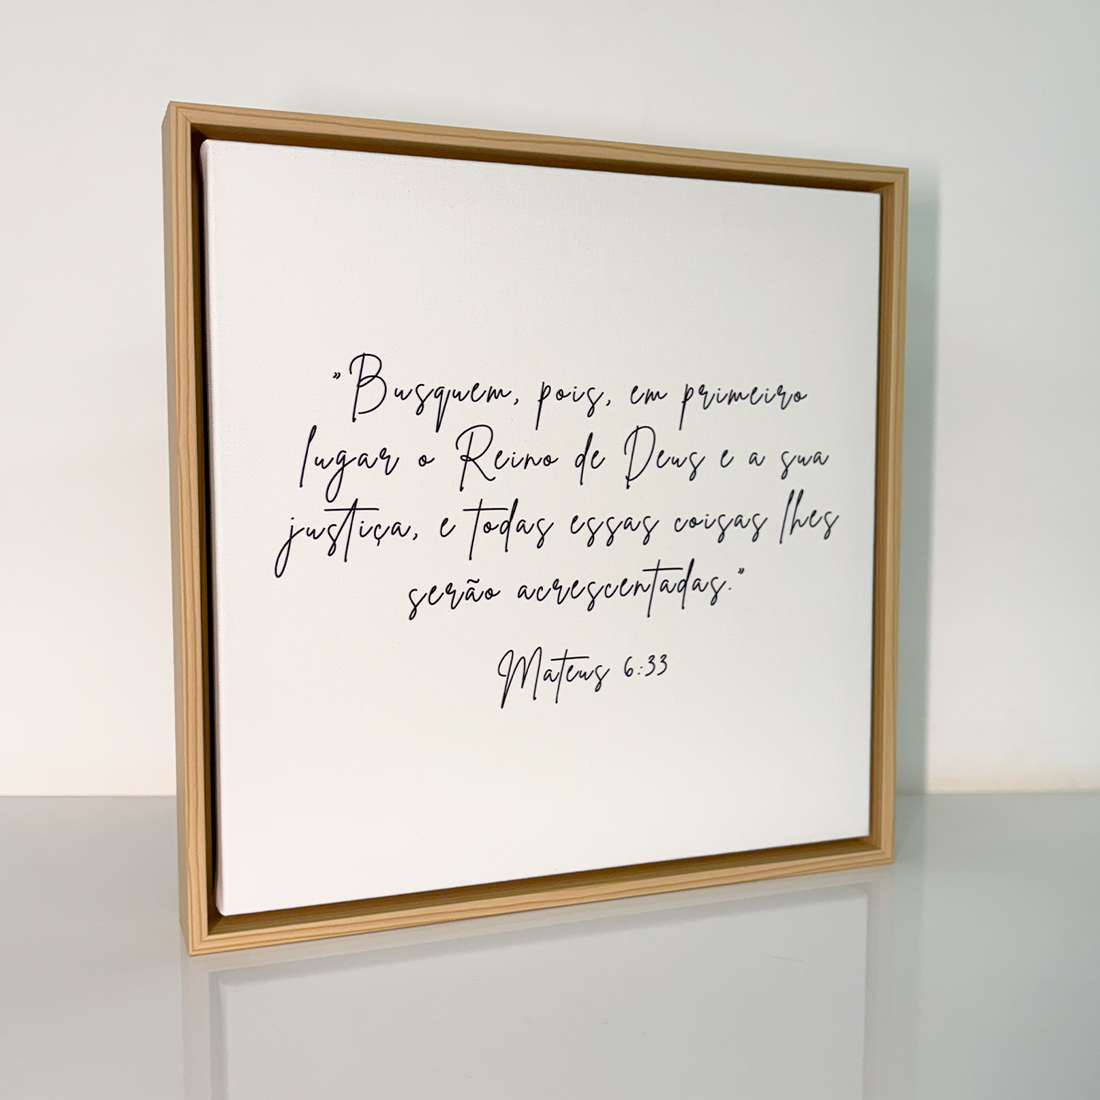 "Busquem, pois, em primeiro
lugar o Reino de Deus e a sua
justiça, e todas essas coisas lhes
serão acrescentadas."
Mateus 6:33